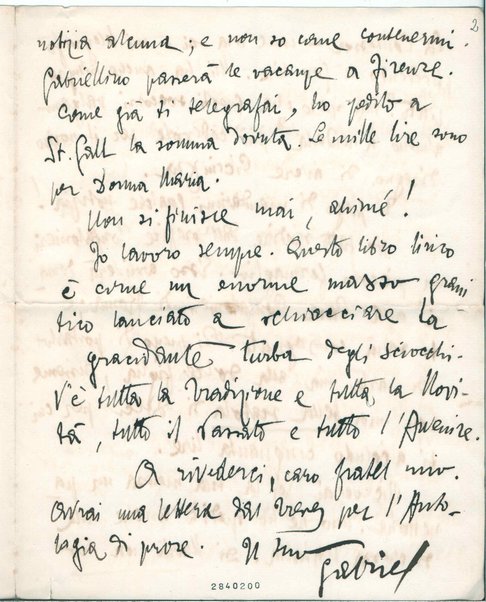 2
notizia alcuna; e non so come contenermi.
Gabriellino passerà le vacanze a Firenze.
Come già ti telegrafai, ho spedito a
St. Gall la somma dovuta. Le mille lire sono
per Donna Maria.
Non si finisce mai, ahimé!
Io lavoro sempre. Questo libro lirico
è come un enorme masso grani
tico lanciato a schiacciare la
gracidante turba degli sciocchi.
V'è tutta la Tradizione e tutta la Novi-
tà, tutto il Passato e tutto l'Avenire.
A rivederci, caro fratel mio.
Avrai una lettera dal Treves per l'Anto-
logia di prose. Il tuo
Gabriel
2840200